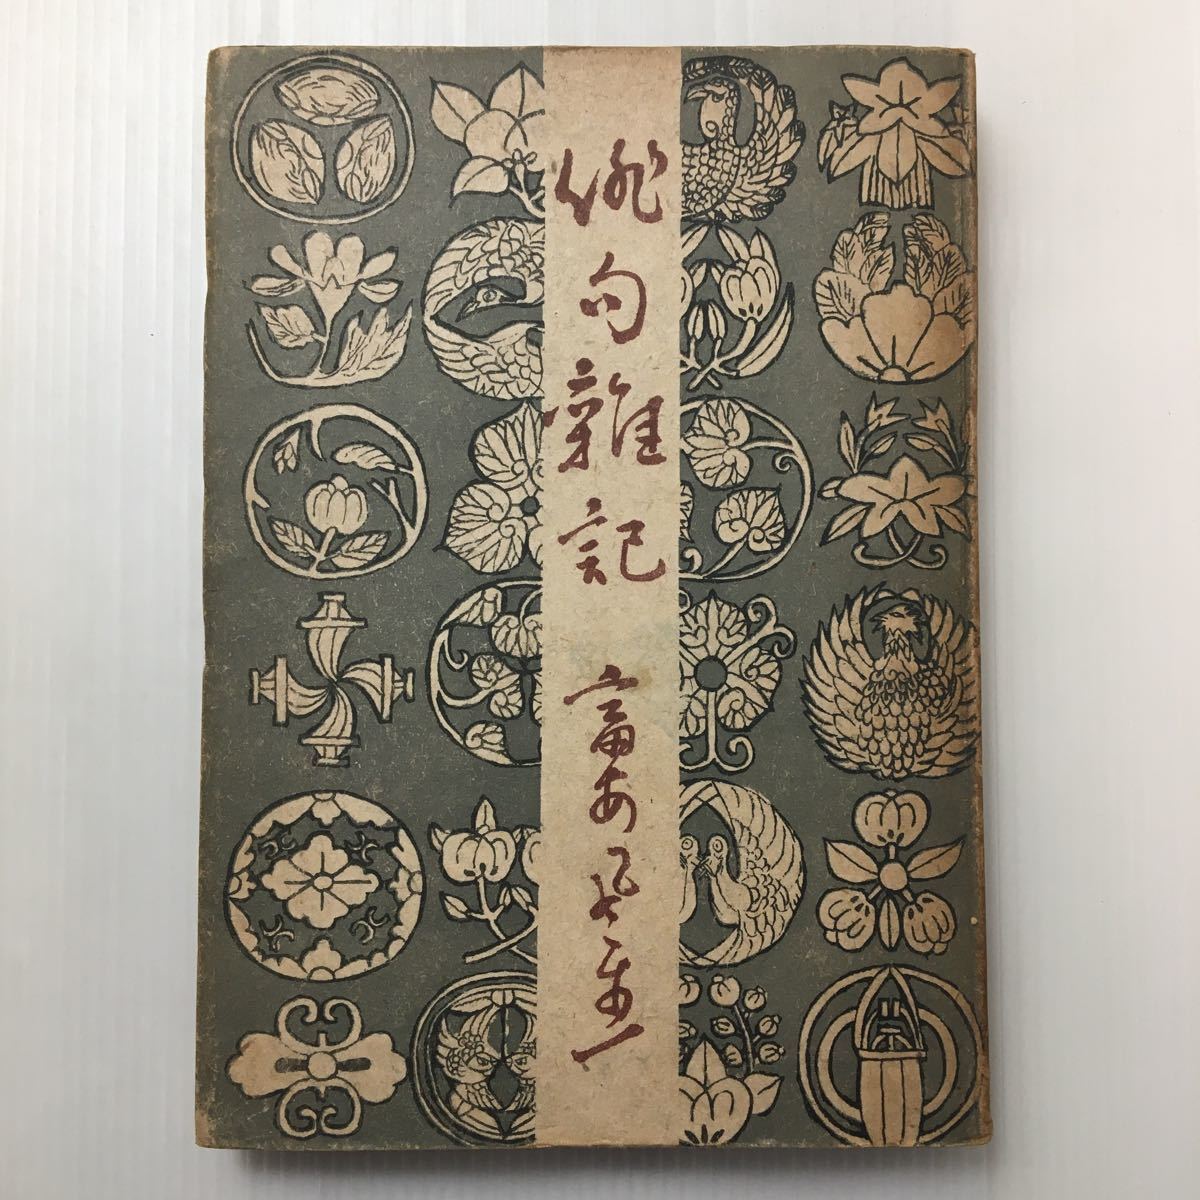 俳句雜記
富安風生